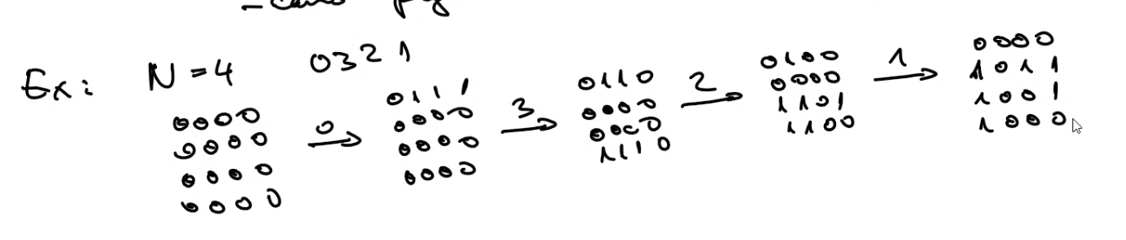 Ex: N = 4 0 3 2 1
0 0 0 0
0 0 0 0
0 0 0 0
0 0 0 0
0 →
0 1 1 1
0 0 0 0
0 0 0 0
0 0 0 0
3 →
0 1 1 0
0 0 0 0
0 0 0 0
1 1 1 0
2 →
0 1 0 0
0 0 0 0
1 1 0 1
1 1 0 0
1 →
0 0 0 0
1 0 1 1
1 0 0 1
1 0 0 0